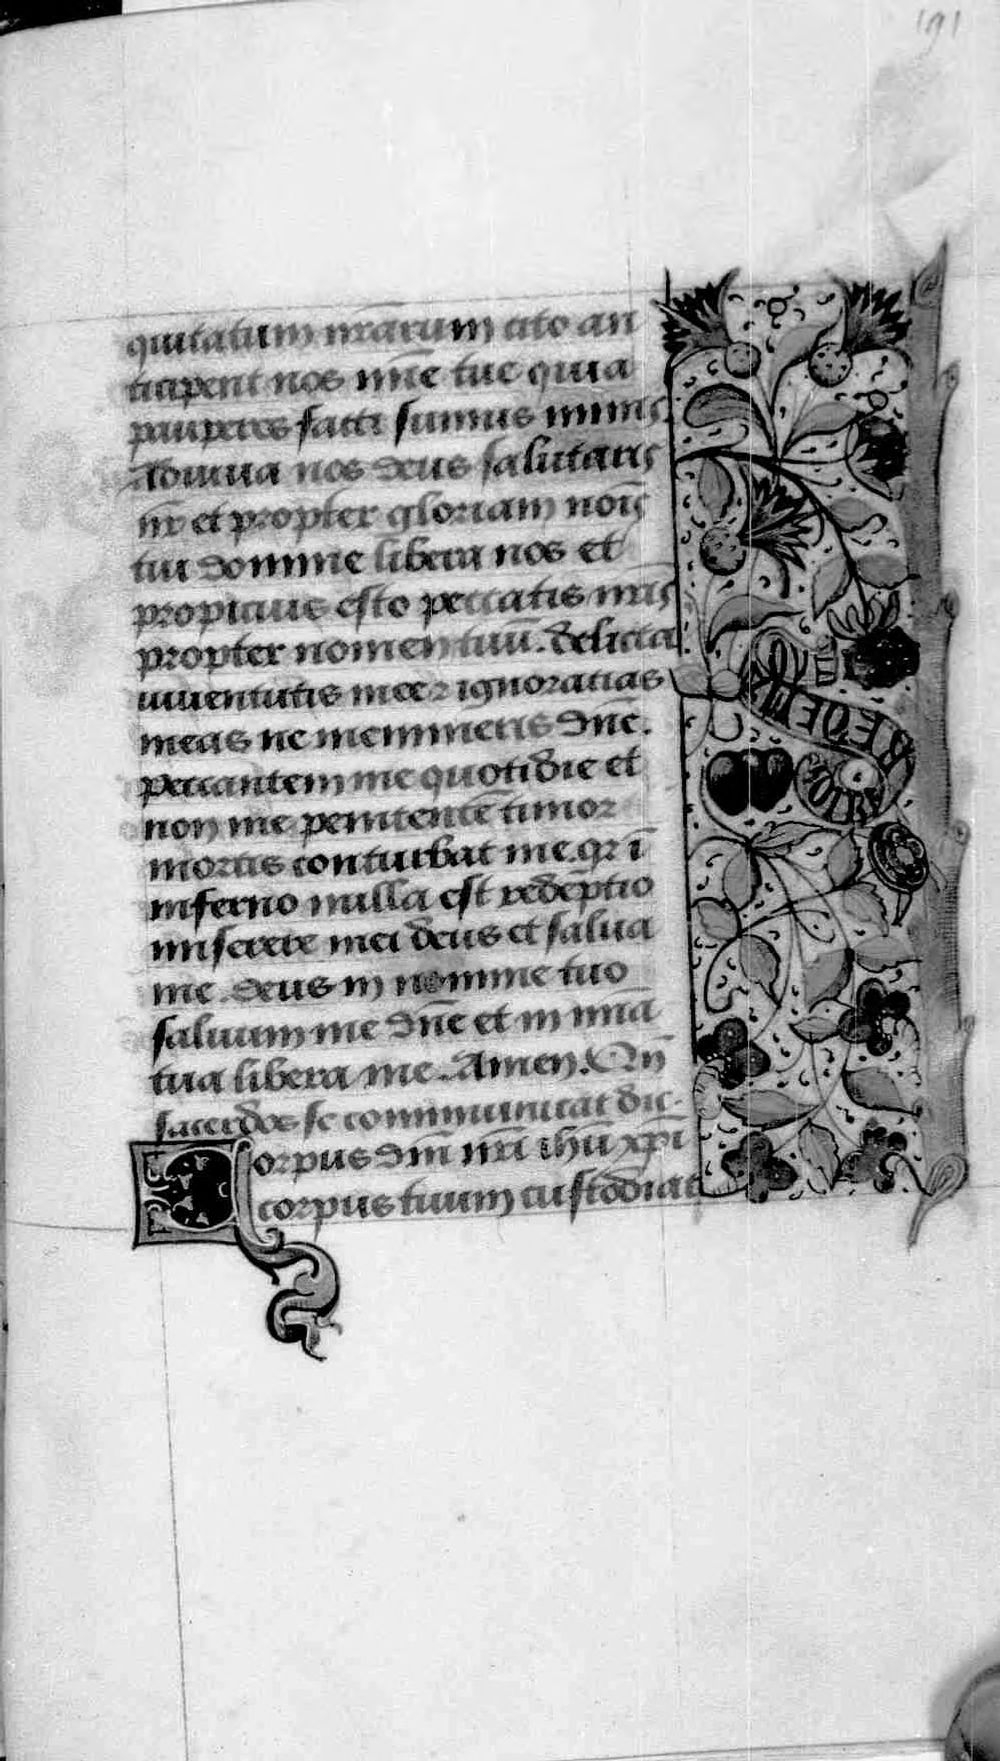 191
quitatum nr̄arum cito an
ticipent nos mīe tue quia
pauperes facti sumus nimis
Adiuua nos deus salutaris
nr̄ et propter gloriam noīs
tui domine libera nos et
propicius esto peccatis nr̄is
propter nomen tuū. delicta
iuuentutis mee ⁊ ignorātias
meas ne memineris dn̄e.
peccantem me quotidie et
non me penitentē timor
mortis conturbat me qr ī
inferno nulla est redēptio
miserere mei deus et salua
me. deus in nomine tuo
saluum me dn̄e et in uirtu
tua libera me. Amen. Qn̄
sacerdos se communicat dic.
Corpus dn̄i nr̄i ihū xp̄i
corpus tuum custodiat